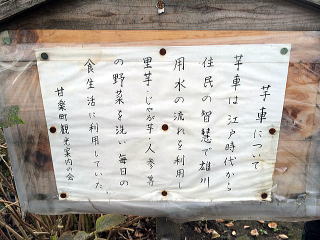 芋車について
芋車は江戸時代から
住民の智慧で雄川
用水の流れを利用し
里芋・じゃが芋・人参等
の野菜を洗い毎日の
食生活に利用していた。
甘楽町観光案内の会